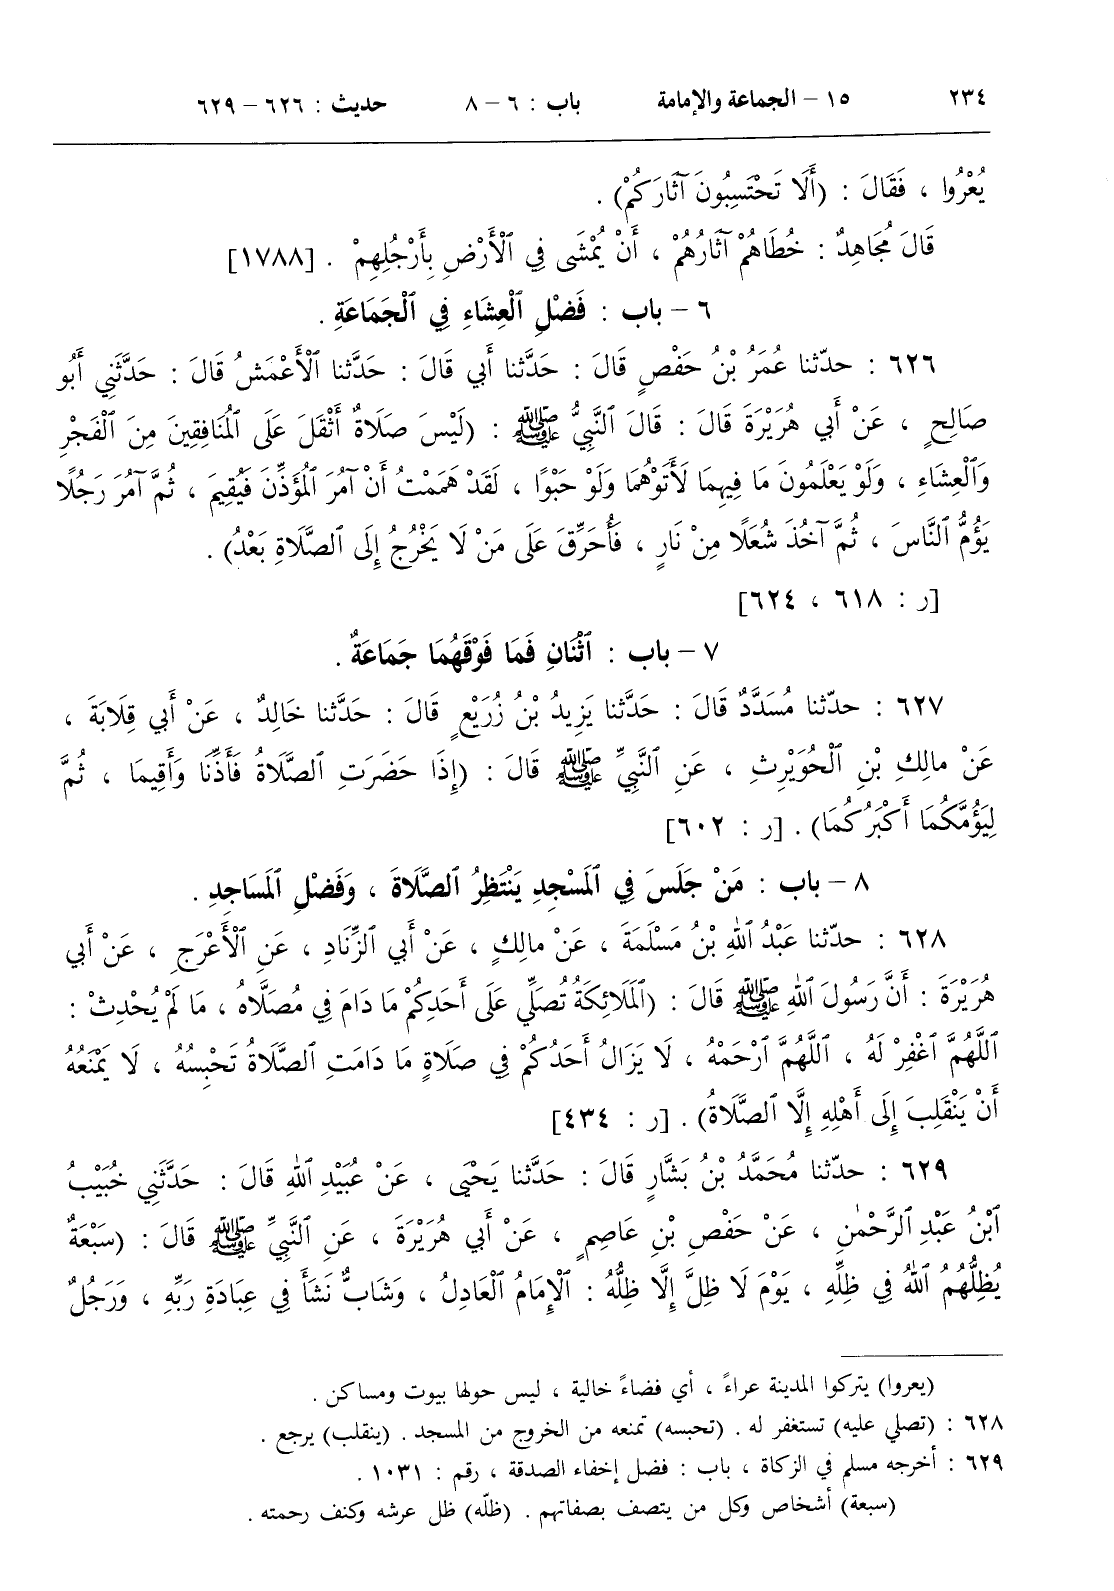 ٢٣٤ ١٥ – الجماعة والإمامة باب : ٦ – ٨ حديث : ٦٢٦ – ٦٢٩
يُعْرُوا ، فَقَالَ : (أَلَا تَحْتَسِبُونَ آثَارَكُمْ) .
قَالَ مُجَاهِدٌ : خُطَاهُمْ آثَارُهُمْ ، أَنْ يُمْشَى فِي ٱلْأَرْضِ بِأَرْجُلِهِمْ . [١٧٨٨]
٦ – باب : فَضْلِ ٱلْعِشَاءِ فِي ٱلْجَمَاعَةِ .
٦٢٦ : حدّثنا عُمَرُ بْنُ حَفْصٍ قَالَ : حَدَّثَنا أَبِي قَالَ : حَدَّثَنا ٱلْأَعْمَشُ قَالَ : حَدَّثَنِي أَبُو
صَالِحٍ ، عَنْ أَبِي هُرَيْرَةَ قَالَ : قَالَ ٱلنَّبِيُّ ﷺ : (لَيْسَ صَلَاةٌ أَثْقَلَ عَلَى ٱلْمُنَافِقِينَ مِنَ ٱلْفَجْرِ
وَٱلْعِشَاءِ ، وَلَوْ يَعْلَمُونَ مَا فِيهِمَا لَأَتَوْهُمَا وَلَوْ حَبْوًا ، لَقَدْ هَمَمْتُ أَنْ آمُرَ ٱلْمُؤَذِّنَ فَيُقِيمَ ، ثُمَّ آمُرَ رَجُلًا
يَؤُمُّ ٱلنَّاسَ ، ثُمَّ آخُذَ شُعَلًا مِنْ نَارٍ ، فَأُحَرِّقَ عَلَى مَنْ لَا يَخْرُجُ إِلَى ٱلصَّلَاةِ بَعْدُ) .
[ر : ٦١٨ ، ٦٢٤]
٧ – باب : ٱثْنَانِ فَمَا فَوْقَهُمَا جَمَاعَةٌ .
٦٢٧ : حدّثنا مُسَدَّدٌ قَالَ : حَدَّثَنا يَزِيدُ بْنُ زُرَيْعٍ قَالَ : حَدَّثَنا خَالِدٌ ، عَنْ أَبِي قِلَابَةَ ،
عَنْ مالِكِ بْنِ ٱلْحُوَيْرِثِ ، عَنِ ٱلنَّبِيِّ ﷺ قَالَ : (إِذَا حَضَرَتِ ٱلصَّلَاةُ فَأَذِّنَا وَأَقِيمَا ، ثُمَّ
لِيَؤُمَّكُمَا أَكْبَرُكُمَا) . [ر : ٦٠٢]
٨ – باب : مَنْ جَلَسَ فِي ٱلْمَسْجِدِ يَنْتَظِرُ ٱلصَّلَاةَ ، وَفَضْلِ ٱلْمَسَاجِدِ .
٦٢٨ : حدّثنا عَبْدُ ٱللهِ بْنُ مَسْلَمَةَ ، عَنْ مالِكٍ ، عَنْ أَبِي ٱلزِّنَادِ ، عَنِ ٱلْأَعْرَجِ ، عَنْ أَبِي
هُرَيْرَةَ : أَنَّ رَسُولَ ٱللهِ ﷺ قَالَ : (ٱلْمَلَائِكَةُ تُصَلِّي عَلَى أَحَدِكُمْ مَا دَامَ فِي مُصَلَّاهُ ، مَا لَمْ يُحْدِثْ :
ٱللَّهُمَّ ٱغْفِرْ لَهُ ، ٱللَّهُمَّ ٱرْحَمْهُ ، لَا يَزَالُ أَحَدُكُمْ فِي صَلَاةٍ مَا دَامَتِ ٱلصَّلَاةُ تَحْبِسُهُ ، لَا يَمْنَعُهُ
أَنْ يَنْقَلِبَ إِلَى أَهْلِهِ إِلَّا ٱلصَّلَاةُ) . [ر : ٤٣٤]
٦٢٩ : حدّثنا مُحَمَّدُ بْنُ بَشَّارٍ قَالَ : حَدَّثَنا يَحْيَى ، عَنْ عُبَيْدِ ٱللهِ قَالَ : حَدَّثَنِي خُبَيْبُ
ٱبْنُ عَبْدِ ٱلرَّحْمٰنِ ، عَنْ حَفْصِ بْنِ عَاصِمٍ ، عَنْ أَبِي هُرَيْرَةَ ، عَنِ ٱلنَّبِيِّ ﷺ قَالَ : (سَبْعَةٌ
يُظِلُّهُمُ ٱللهُ فِي ظِلِّهِ ، يَوْمَ لَا ظِلَّ إِلَّا ظِلُّهُ : ٱلْإِمَامُ ٱلْعَادِلُ ، وَشَابٌّ نَشَأَ فِي عِبَادَةِ رَبِّهِ ، وَرَجُلٌ
(يعروا) يتركوا المدينة عراءً ، أي فضاءً خالية ، ليس حولها بيوت ومساكن .
٦٢٨ : (تصلي عليه) تستغفر له . (تحبسه) تمنعه من الخروج من المسجد . (ينقلب) يرجع .
٦٢٩ : أخرجه مسلم في الزكاة ، باب : فضل إخفاء الصدقة ، رقم : ١٠٣١ .
(سبعة) أشخاص وكل من يتصف بصفاتهم . (ظلّه) ظل عرشه وكنف رحمته .